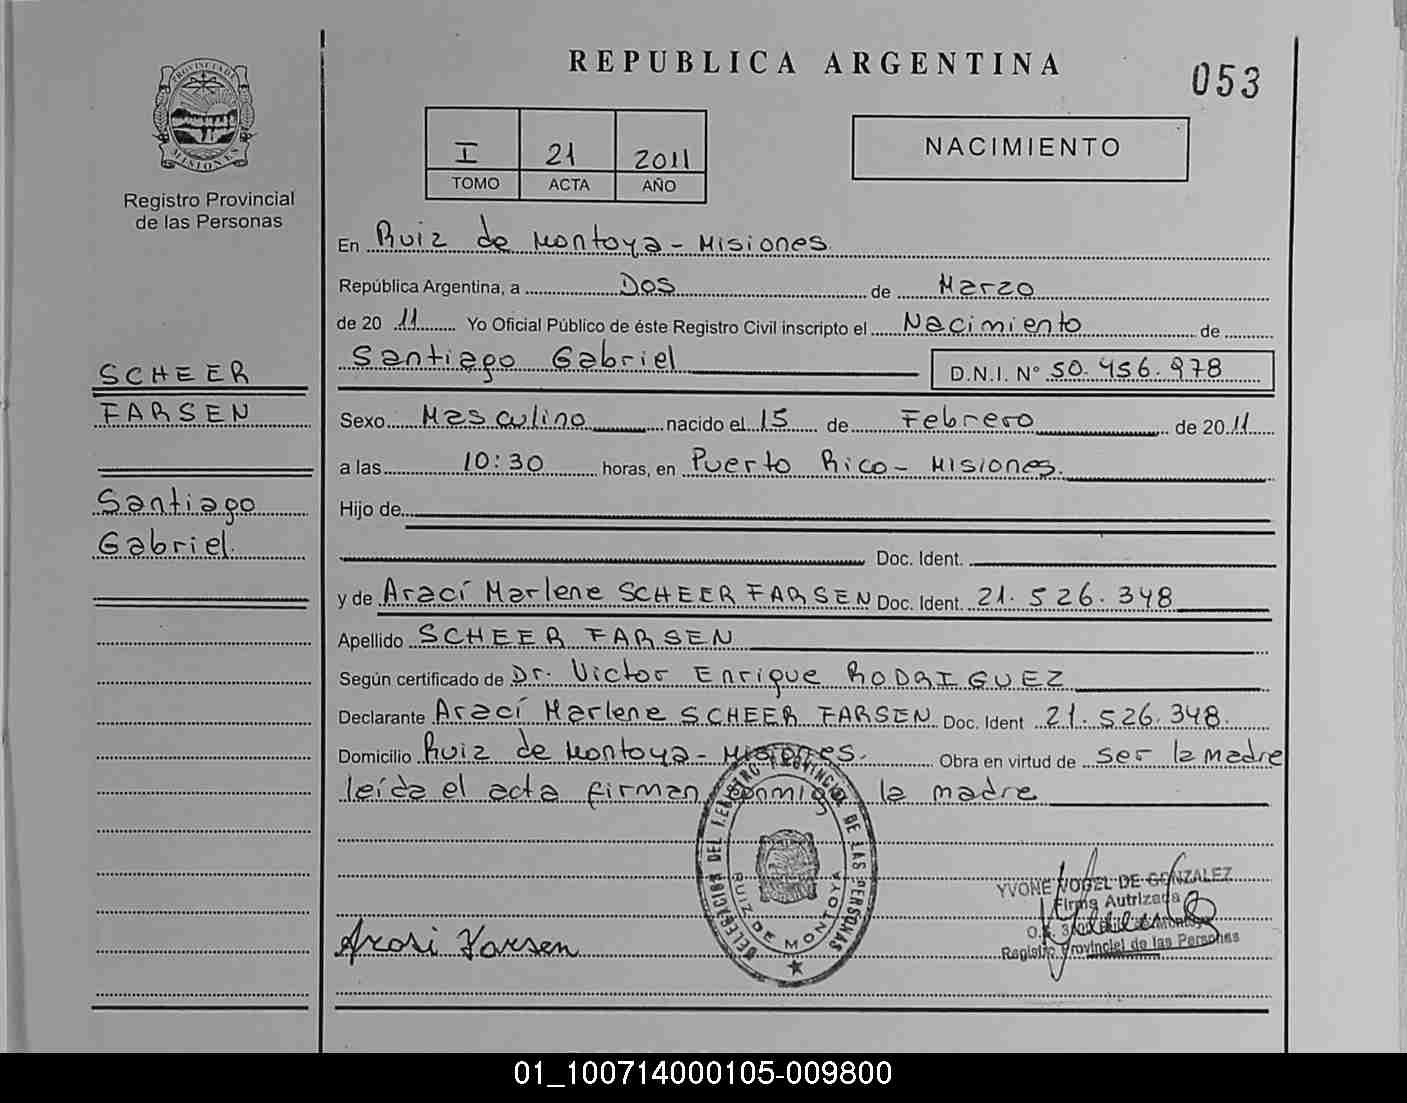 REPUBLICA ARGENTINA
053
PROVINCIA DE MISIONES
Registro Provincial
de las Personas
I 21 2011
TOMO ACTA AÑO
NACIMIENTO
En Ruiz de Montoya - Misiones
República Argentina, a Dos de Marzo
de 20 11 Yo Oficial Público de éste Registro Civil inscripto el Nacimiento de
Santiago Gabriel D.N.I. N° 50.456.978
SCHEER
FARSEN
Santiago
Gabriel.
Sexo Masculino nacido el 15 de Febrero de 20 11
a las 10:30 horas, en Puerto Rico - Misiones.
Hijo de
Doc. Ident.
y de Arací Marlene SCHEER FARSEN Doc. Ident. 21.526.348
Apellido SCHEER FARSEN
Según certificado de Dr. Victor Enrique RODRIGUEZ
Declarante Arací Marlene SCHEER FARSEN Doc. Ident 21.526.348.
Domicilio Ruiz de Montoya - Misiones. Obra en virtud de ser la madre
leída el acta firman conmigo la madre
DELEGACION DEL REGISTRO PROVINCIAL DE LAS PERSONAS
RUIZ DE MONTOYA
Arasi Farsen
YVONE VOGEL DE GONZALEZ
Firma Autrizada
Registro Provincial de las Personas
01_100714000105-009800